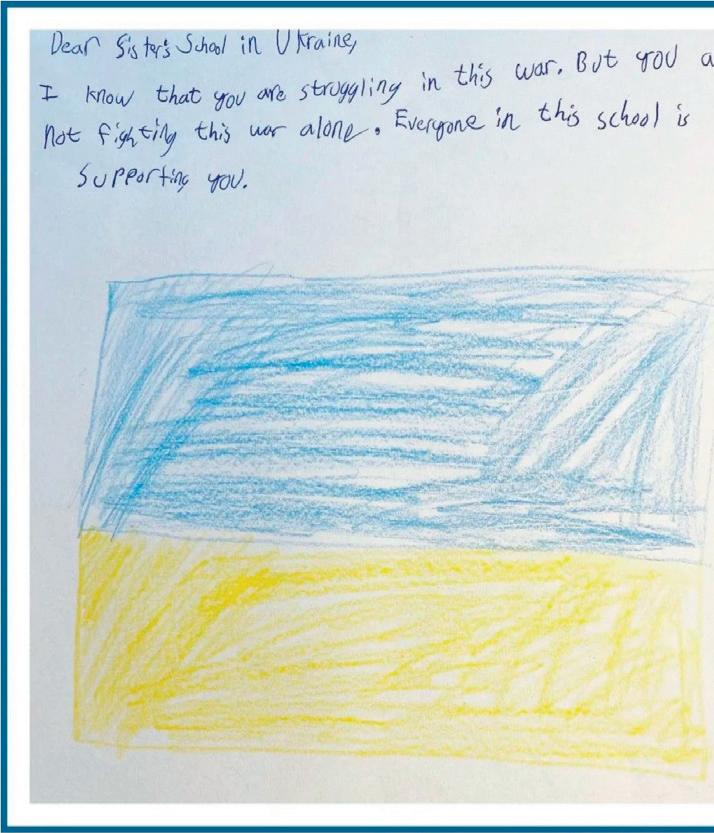 Dear Sister's School in Ukraine,
I know that you are struggling in this war. But you a
not fighting this war alone. Everyone in this school is
supporting you.